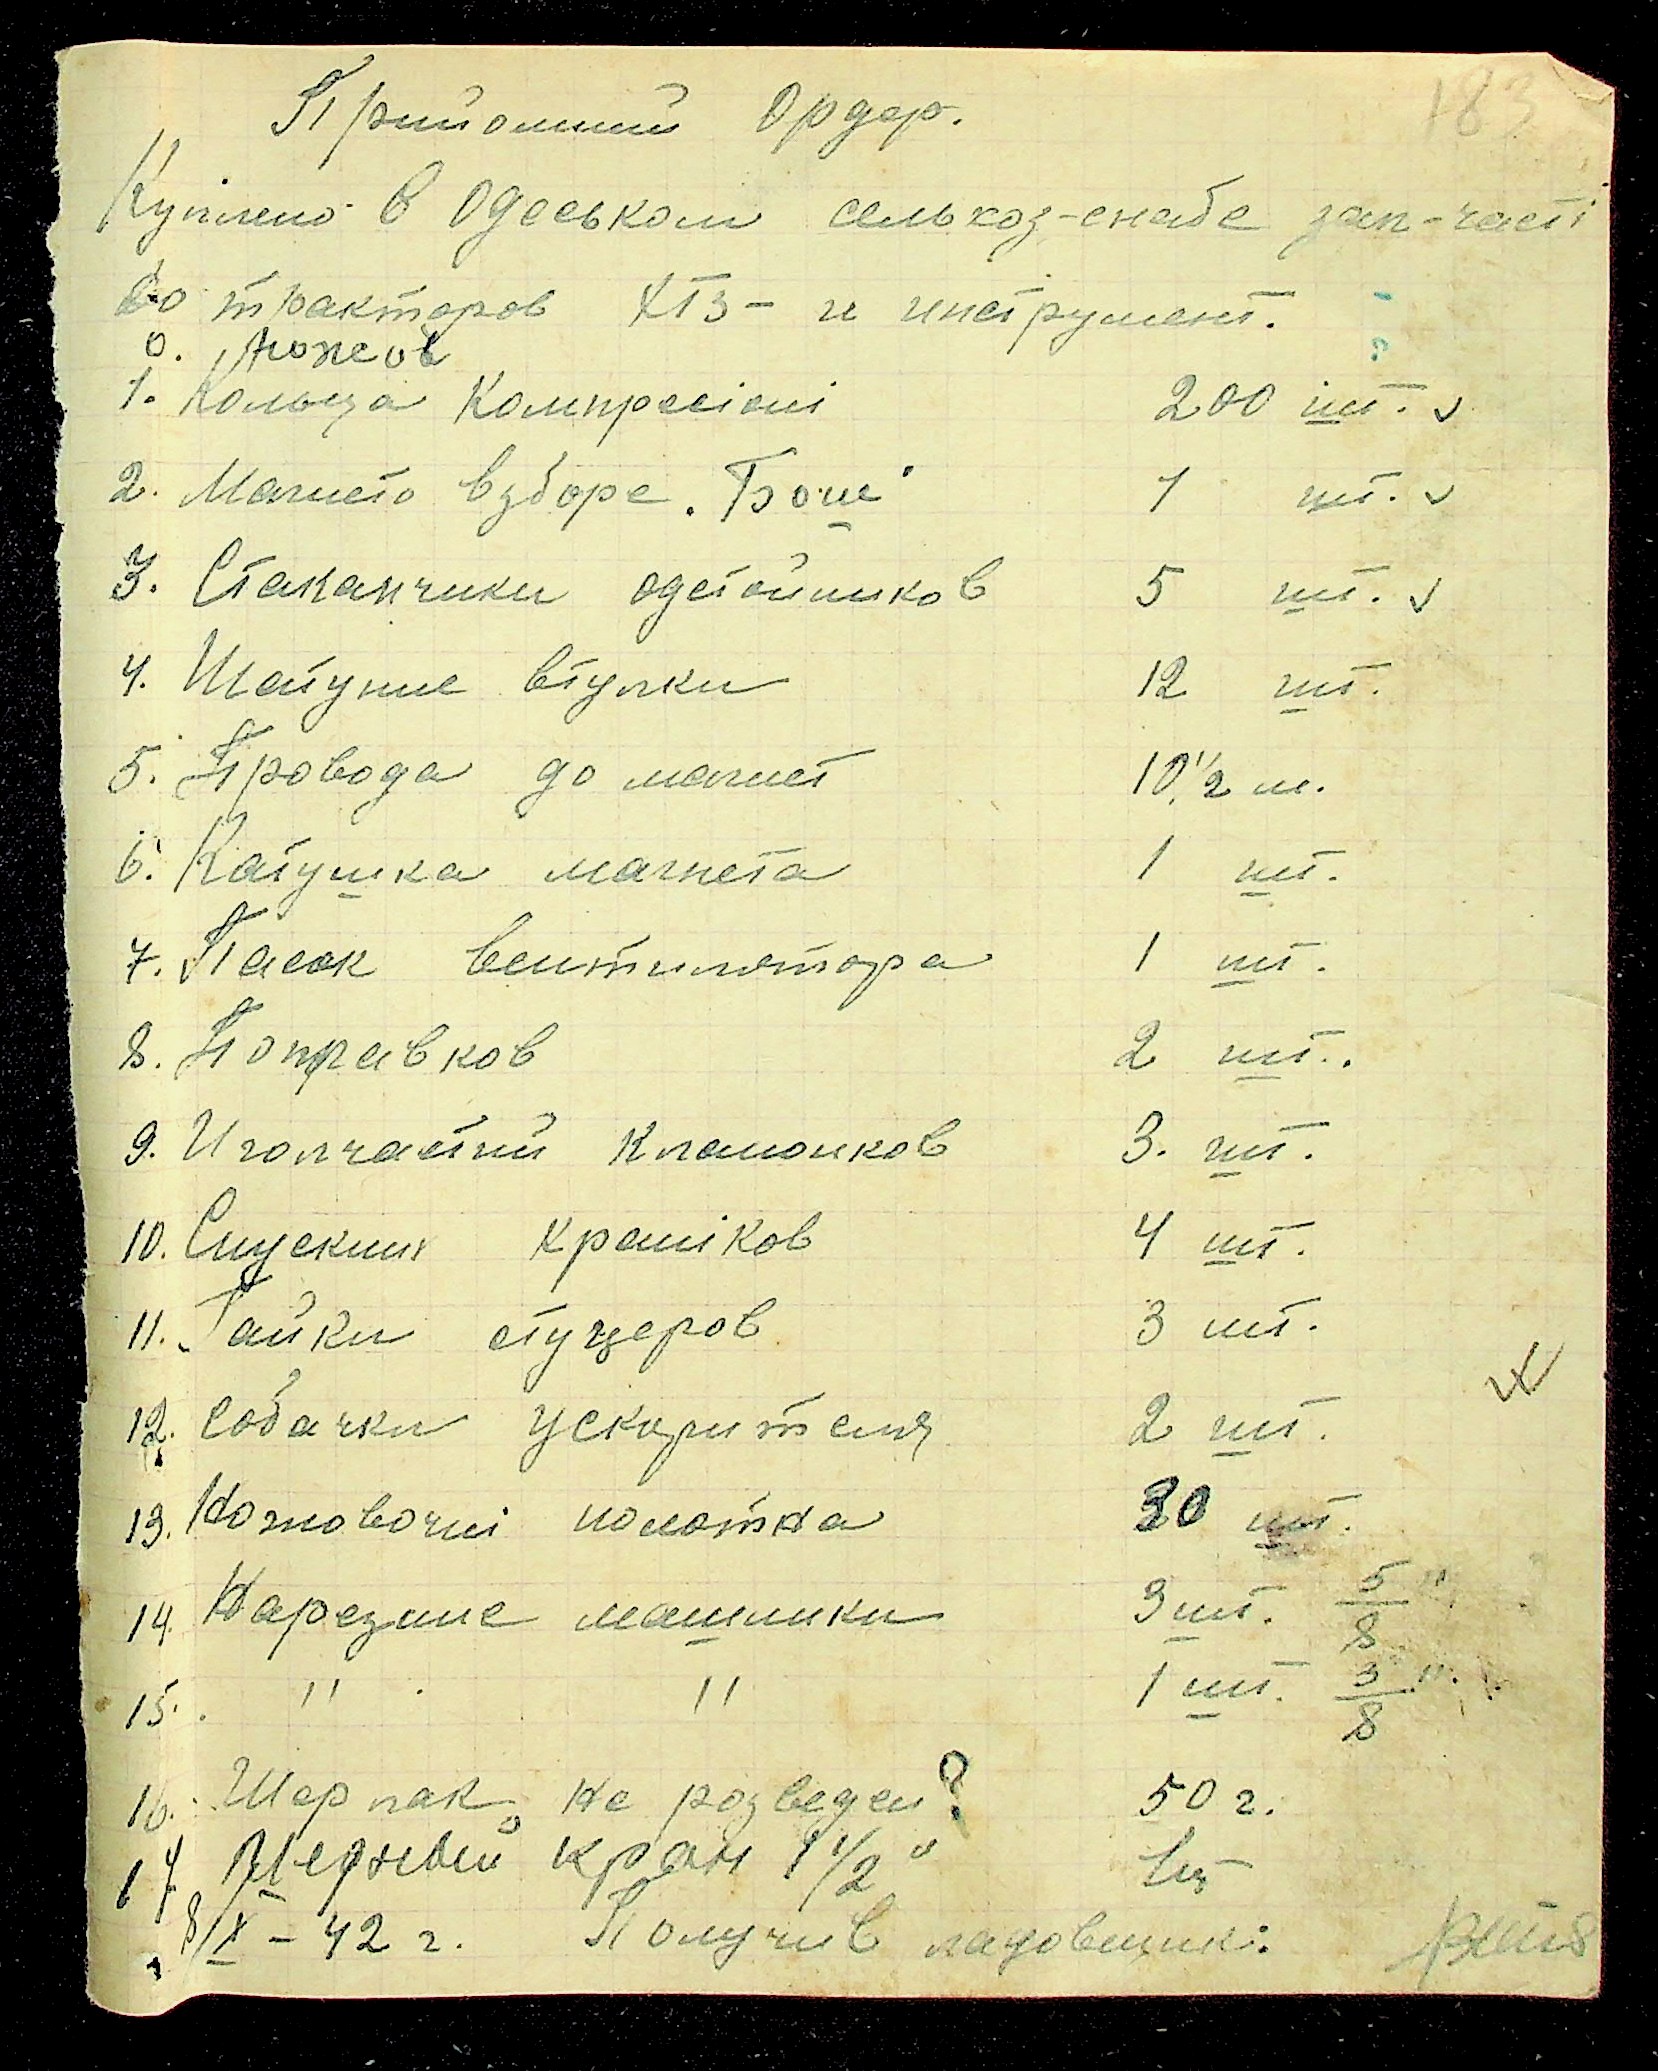 183
Прийомний Ордер.
Куплено в Одеськом сельхоз-снабе зап-часті
до тракторов ХТЗ - и инструмент.
0.
1. Кольца Компресіоні 200 шт. ✓
2. Магнето взборе. Бош 1 шт. ✓
3. Стаканчики одстойников 5 шт. ✓
4. Шатуние втулки 12 шт.
5. Провода до магнет 10 1/2 м.
6. Катушка магнета 1 шт.
7. Пасок вентилятора 1 шт.
8. Поправков 2 шт.
9. Иголчастий Клапонков 3. шт.
10. Спускних краніков 4 шт.
11. Гайки стуцеров 3 шт.
12. Собачки ускорителя 2 шт.
13. Ножовочні полотна 30 шт.
14. Нарезние машинки 3 шт. 5/8"
15. " " 1 шт. 3/8"
16. Шерлак не розведен? 50 г.
17 Медний кран 1 1/2" 1 шт
8/IX - 42 г. Получив кладовщик: